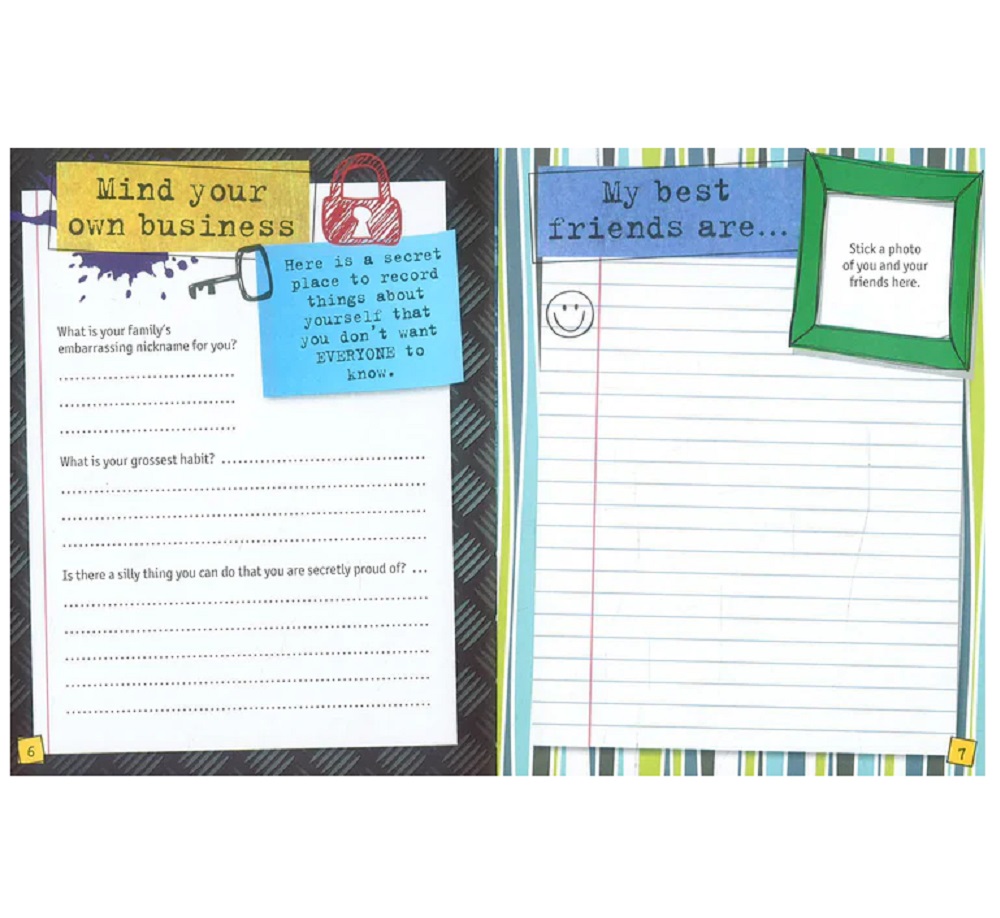 Mind your
own business
Here is a secret
place to record
things about
yourself that
you don't want
EVERYONE to
know.
What is your family's
embarrassing nickname for you?
What is your grossest habit?
Is there a silly thing you can do that you are secretly proud of?
6
My best
friends are...
Stick a photo
of you and your
friends here.
7